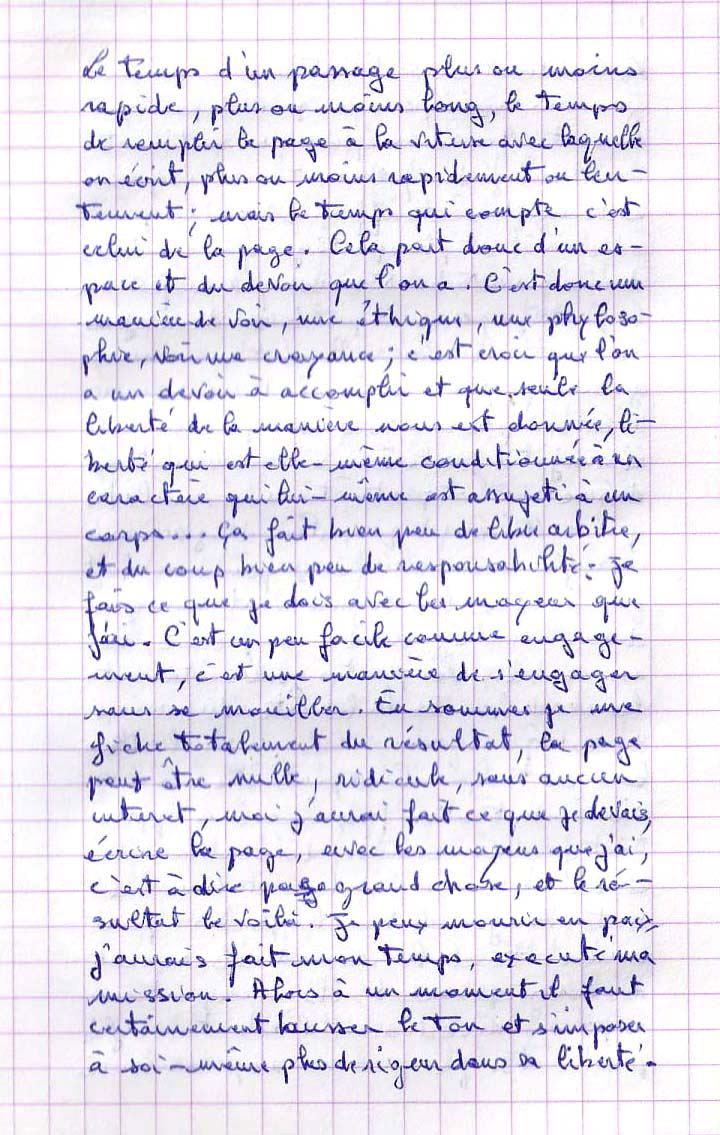 Le temps d'un passage plus ou moins
rapide, plus ou moins long, le temps
de remplir la page à la vitesse avec laquelle
on écrit, plus ou moins rapidement ou len-
tement ; mais le temps qui compte c'est
celui de la page. Cela part donc d'un es-
pace et du devoir que l'on a. C'est donc une
manière de voir, une éthique, une phyloso-
phie, voir une croyance ; c'est croire que l'on
a un devoir à accomplir et que seule la
liberté de la manière nous est donnée, li-
berté qui est elle-même conditionnée à un
caractère qui lui-même est assujeti à un
corps... Ça fait bien peu de libre arbitre,
et du coup bien peu de responsabilité : Je
fais ce que je dois avec les moyens que
j'ai. C'est un peu facile comme engage-
ment, c'est une manière de s'engager
sans se mouiller. En sommes je me
fiche totalement du résultat, la page
peut être nulle, ridicule, sans aucun
interet, moi j'aurai fait ce que je devais,
écrire la page, avec les moyens que j'ai,
c'est à dire pas grand chose, et le ré-
sultat le voilà. Je peux mourir en paix,
j'aurais fait mon temps, executé ma
mission. Alors à un moment il faut
certainement hausser le ton et s'imposer
à soi-même plus de rigeur dans sa liberté.